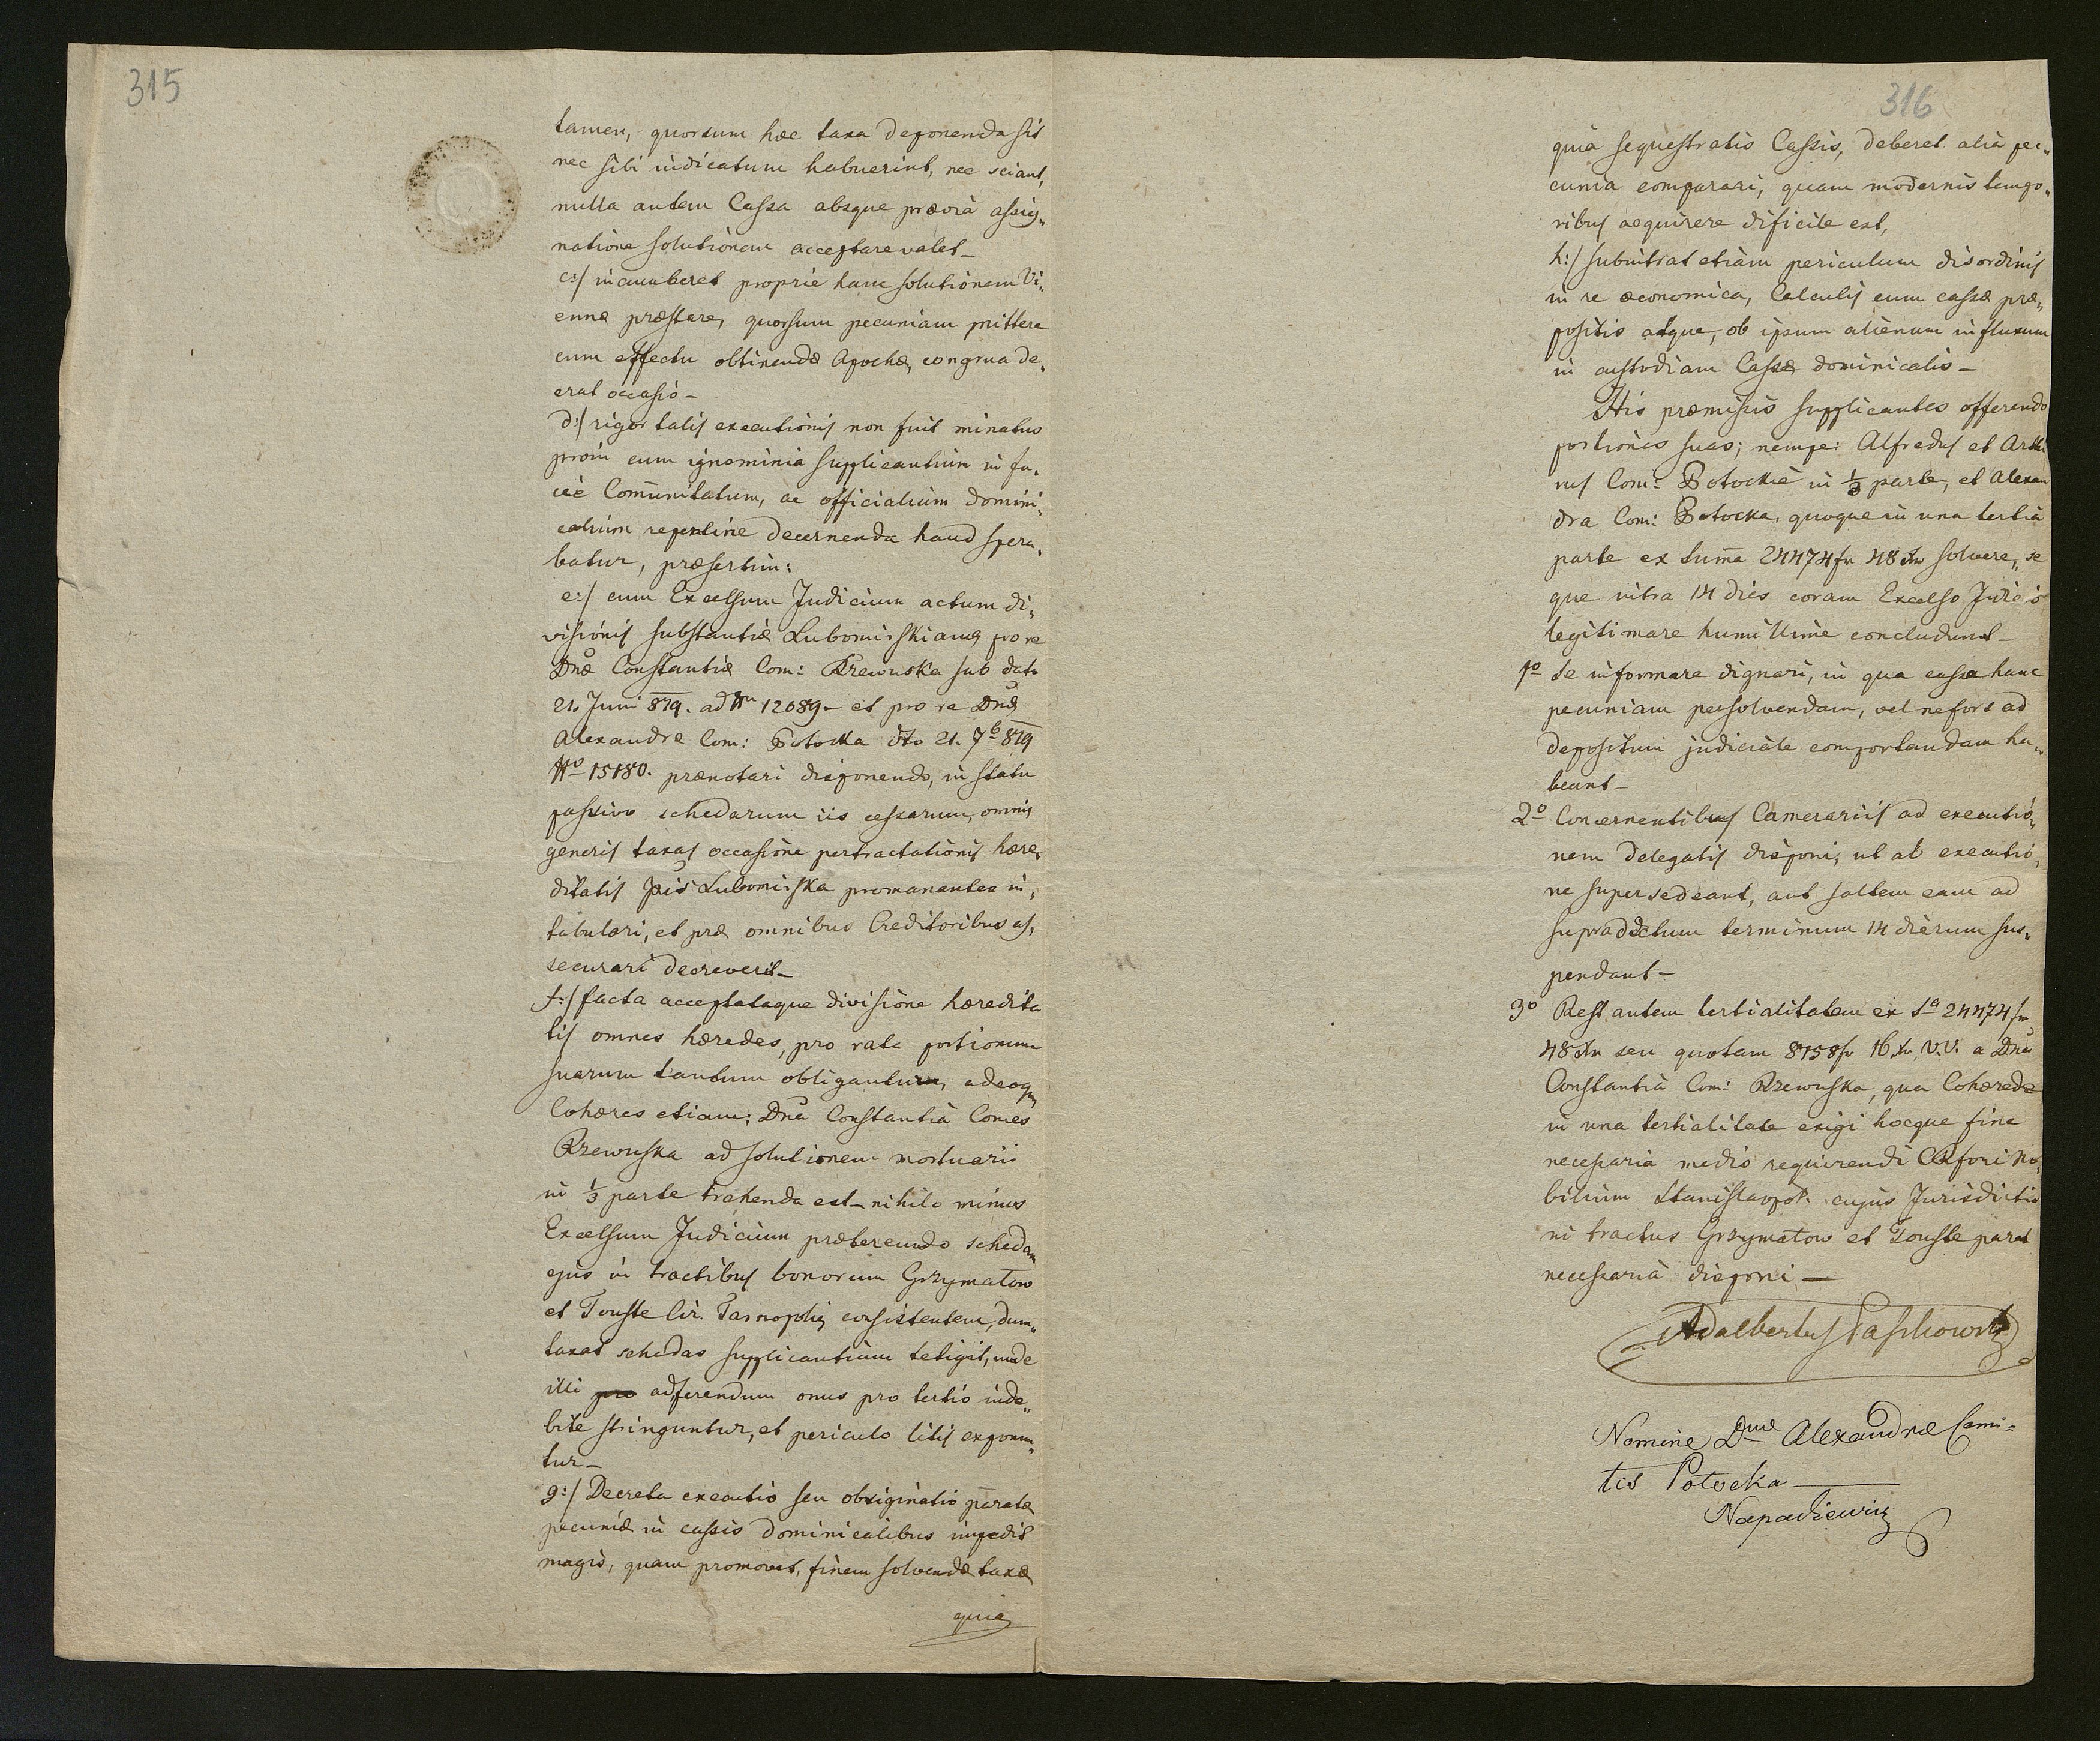 315
tamen, quorsum hæc taxa deponenda sit
nec sibi indicatum habuerint, nec sciant,
nulla autem Cassa absque prævia assig„
natione solutionem acceptare valet_
c:/ incumberet proprie hanc solutionem Vi„
ennæ præstare, quorsum pecuniam mittere
cum effectu obtinendæ Apochæ, congrua de„
erat occasio_
d:/ rigor talis executionis non fuit minatus
proin cum ignominia supplicantium in fa„
cie Com̄unitatum, ac officialium domini„
calium repentine decernenda haud spera„
batur, præsertim:
e:/ cum Excelsum Judicium actum di„
visionis substantiæ Lubomirskianæ, pro re
Dnæ Constantiæ Com: Rzewuska sub dato
21. Juni 819. ad Nrū 12089 – et pro re Dnæ
Alexandræ Com: Potocka dto 21. 7b 819
Nº 15180. prænotari disponendo, in statu
passivo schedarum iis cessarum, omnis
generis taxas occasione pertractationis hære„
ditatis Ppis Lubomirska promanantes in„
tabulari, et præ omnibus Creditoribus as„
securari decreverit_
f:/ facta acceptataque divisione hæredita
tis omnes hæredes, pro rata portionum
suarum tantum obligantur, adeoq̃
Cohæres etiam: Dna Constantia Comes
Rzewuska ad solutionem mortuarii
in ⅓ parte trahenda est_ nihilo minus
Excelsum Judicium prætereundo schedam
ejus in tractibus bonorum Grzymałow
et Touste Cir. Tarnopliæ consistentem, dum„
taxat schedas supplicantium tetigit, unde
illi pro adferendum onus pro tertio inde„
bite stringuntur, et periculo litis exponun„
tur_
g:/ Decreta executio seu obsignatio paratæ
pecuniæ in cassis dominicalibus impedit
magis, quam promovet, finem solvendæ taxæ
quia
316
quia sequestratis Cassis, deberet alia pec„
cunia comparari, quam modernis tempo„
ribus acquirere dificile est,
h:/ subintrat etiam periculum disordinis
in re œconomica, Calculis cum cassæ præ„
positis atque, ob ipsum alienum influxum
in custodiam Cassæ dominicalis_
His præmissis supplicantes offerendo
portiones suas; nempe: Alfredus et Arthu
rus Com: Potockie in ⅓ parte, et Alexan
dra Com: Potocka, quoque in una tertia
parte ex sum̄a 24474 fr 48 xr solvere, se
que intra 14 dies coram Excelso Judicio
legitimare humillime concludunt_
1º Se informare dignari, in qua cassa hanc
pecuniam persolvendam, vel ne fors ad
depositum judiciale comportandam ha„
beant_
2º Concernentibus Camerariis ad executio„
nem delegatis disponi, ut ab executio„
ne supersedeant, aut saltem eam ad
supradictum terminum 14 dierum sus„
pendant_
3º Rest autem tertialitatem ex Sa 24474 fr
48 xr seu quotam 8158 fr 16 xr V.V. a Dna
Constantia Com: Rzewuska, qua Cohærede
in una tertialitate exigi hocque fine
necessaria medio requirendi CR fori No„
bilium Stanislavpol. cujus Jurisdictio
ni tractus Grzymałow et Touste paret
necessaria disponi —
Adalbertus Paschowitz
Nomine Dnæ Alexandræ Comi=
tis Potocka
Napadiewicz